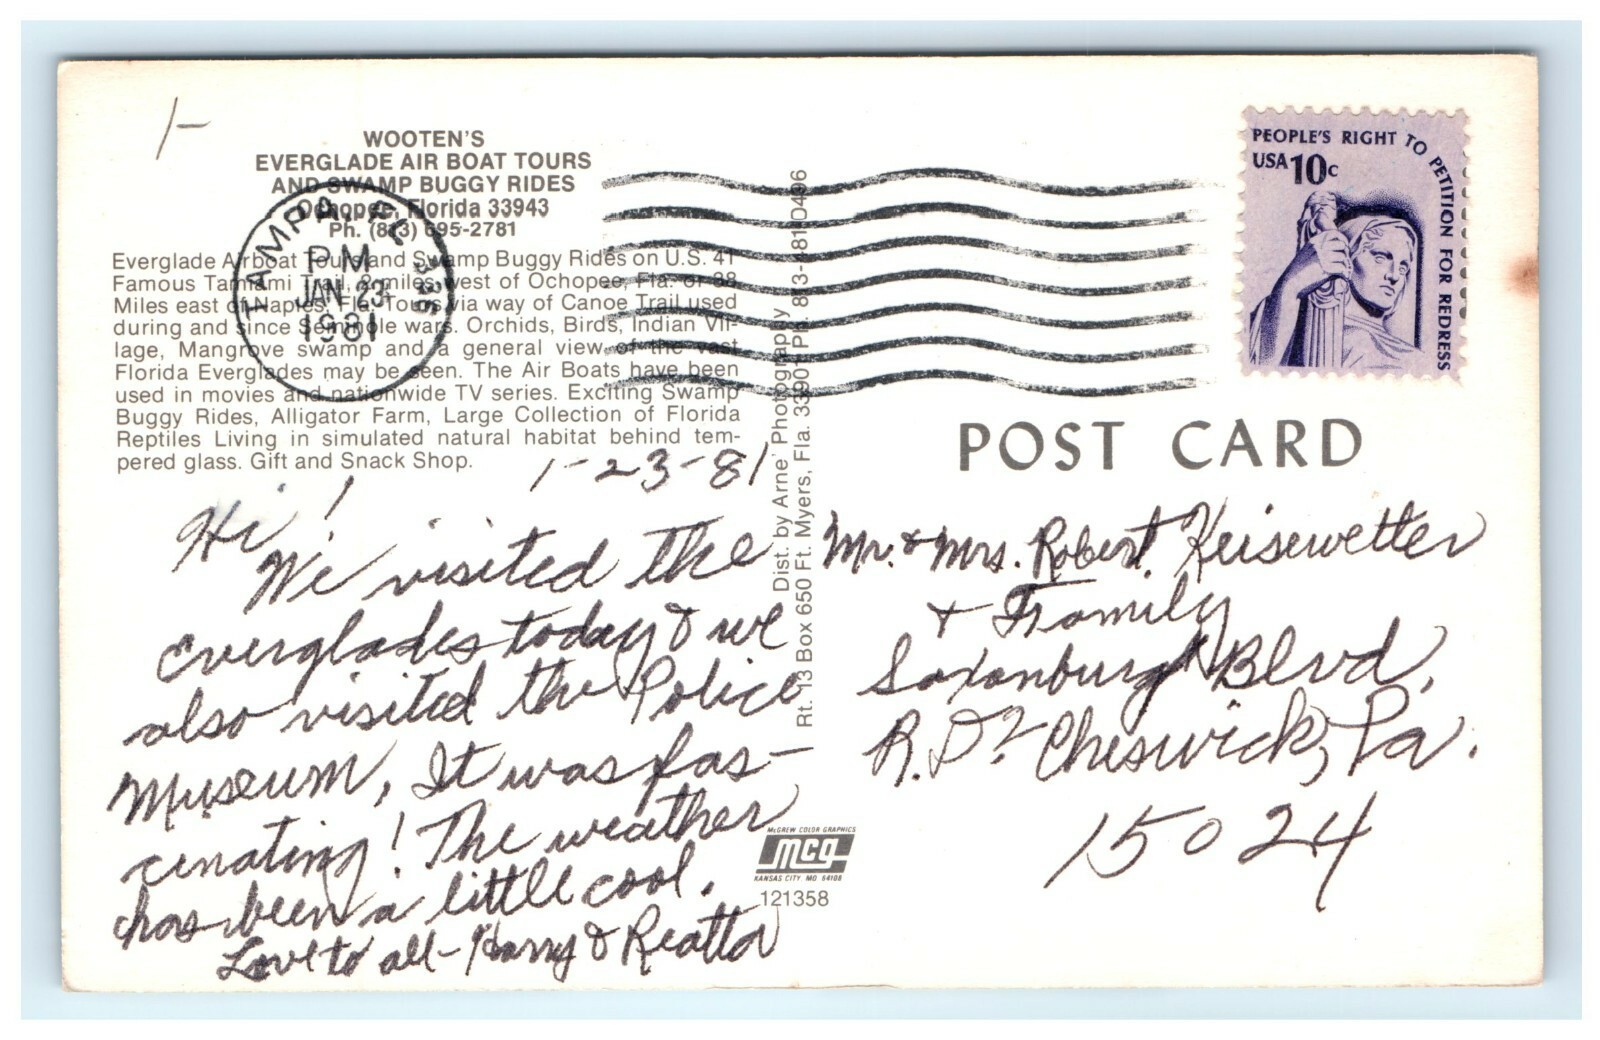 1-
WOOTEN'S
EVERGLADE AIR BOAT TOURS
AND SWAMP BUGGY RIDES
Ochopee, Florida 33943
Ph. (813) 695-2781
Everglade Airboat Tours and Swamp Buggy Rides on U.S. 41
Famous Tamiami Trail, 2 miles west of Ochopee, Fla. or 38
Miles east of Naples, Fla. Tours via way of Canoe Trail used
during and since Seminole wars. Orchids, Birds, Indian Vil-
lage, Mangrove swamp and a general view of the vast
Florida Everglades may be seen. The Air Boats have been
used in movies and nationwide TV series. Exciting Swamp
Buggy Rides, Alligator Farm, Large Collection of Florida
Reptiles Living in simulated natural habitat behind tem-
pered glass. Gift and Snack Shop.
TAMPA, FL 336
PM
JAN 23
1981
1-23-81
Hi!
We visited the
Everglades today & we
also visited the Police
Museum. It was fas-
cinating! The weather
has been a little cool.
Love to all - Harry & Reatta
Dist. by Arne' Photography Ph. 813-481-0496
Rt. 13 Box 650 Ft. Myers, Fla. 33901
McGREW COLOR GRAPHICS
mcg
KANSAS CITY, MO 64108
121358
PEOPLE'S RIGHT TO PETITION FOR REDRESS
USA 10c
POST CARD
Mr. & Mrs. Robert Keisewetter
& Family
Saxonburg Blvd.
R.D2 Cheswick, Pa.
15024